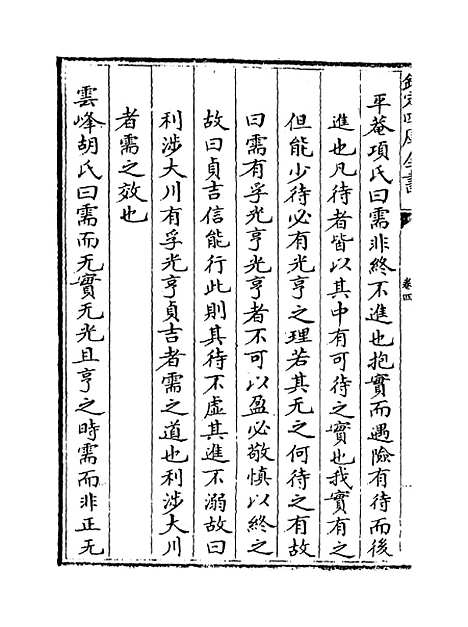 欽定四庫全書
卷四
平菴項氏曰需非終不進也抱實而遇險有待而後
進也凡待者皆以其中有可待之實也我實有之
但能少待必有光亨之理若其无之何待之有故
曰需有孚光亨光亨者不可以盈必敬慎以終之
故曰貞吉信能行此則其待不虛其進不溺故曰
利涉大川有孚光亨貞吉者需之道也利涉大川
者需之效也
雲峰胡氏曰需而无實无光且亨之時需而非正无